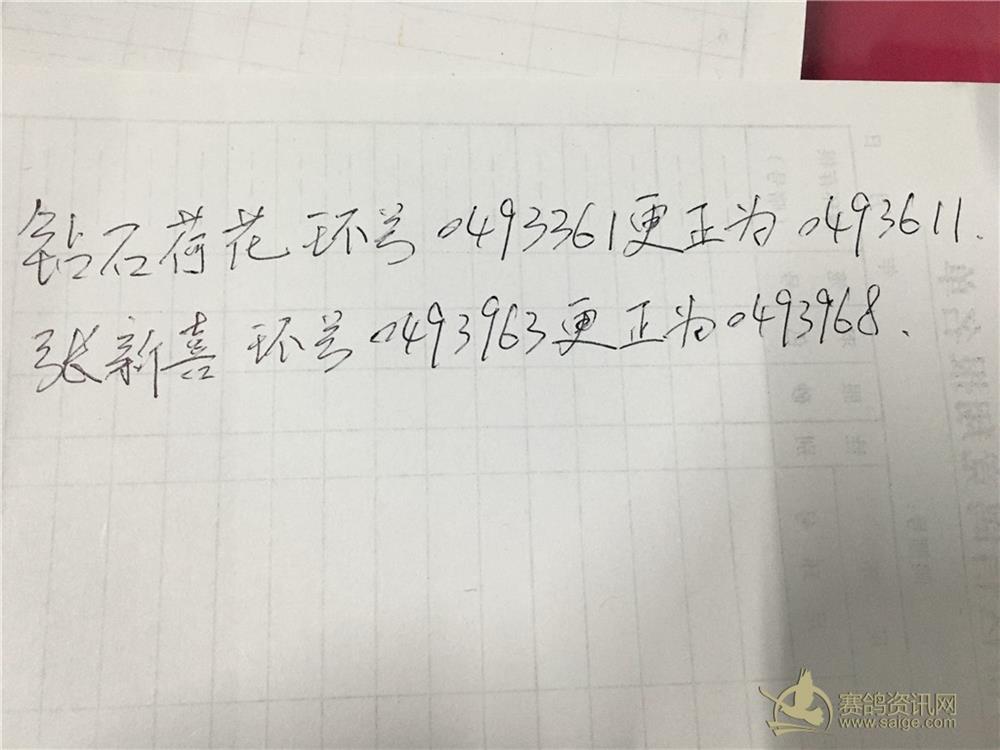 钻石荷花环号0493361更正为0493611.
张新喜环号0493963更正为0493968.
赛鸽资讯网
www.saige.com